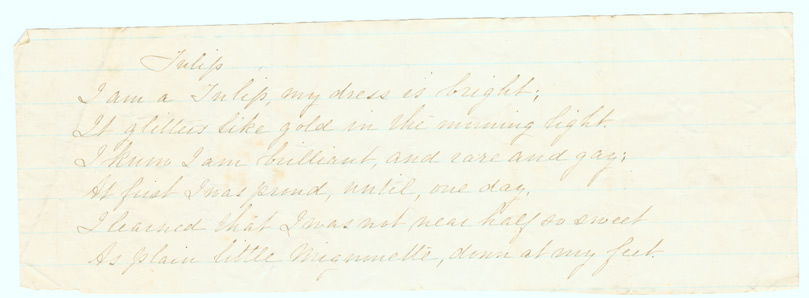 Tulip
I am a Tulip, my dress is bright;
It glitters like gold in the morning light.
I know I am brilliant, and rare and gay;
At first I was proud, until, one day,
I learned that I was not near half so sweet
As plain little Mignonette, down at my feet.